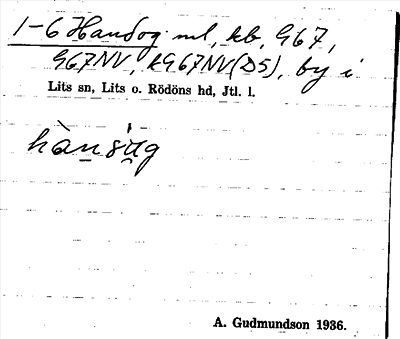 1-6 Handog ml, kb, 967,
967NV, k967NV(DS), by i
Lits sn, Lits o. Rödöns hd, Jtl. l.
A. Gudmundson 1936.